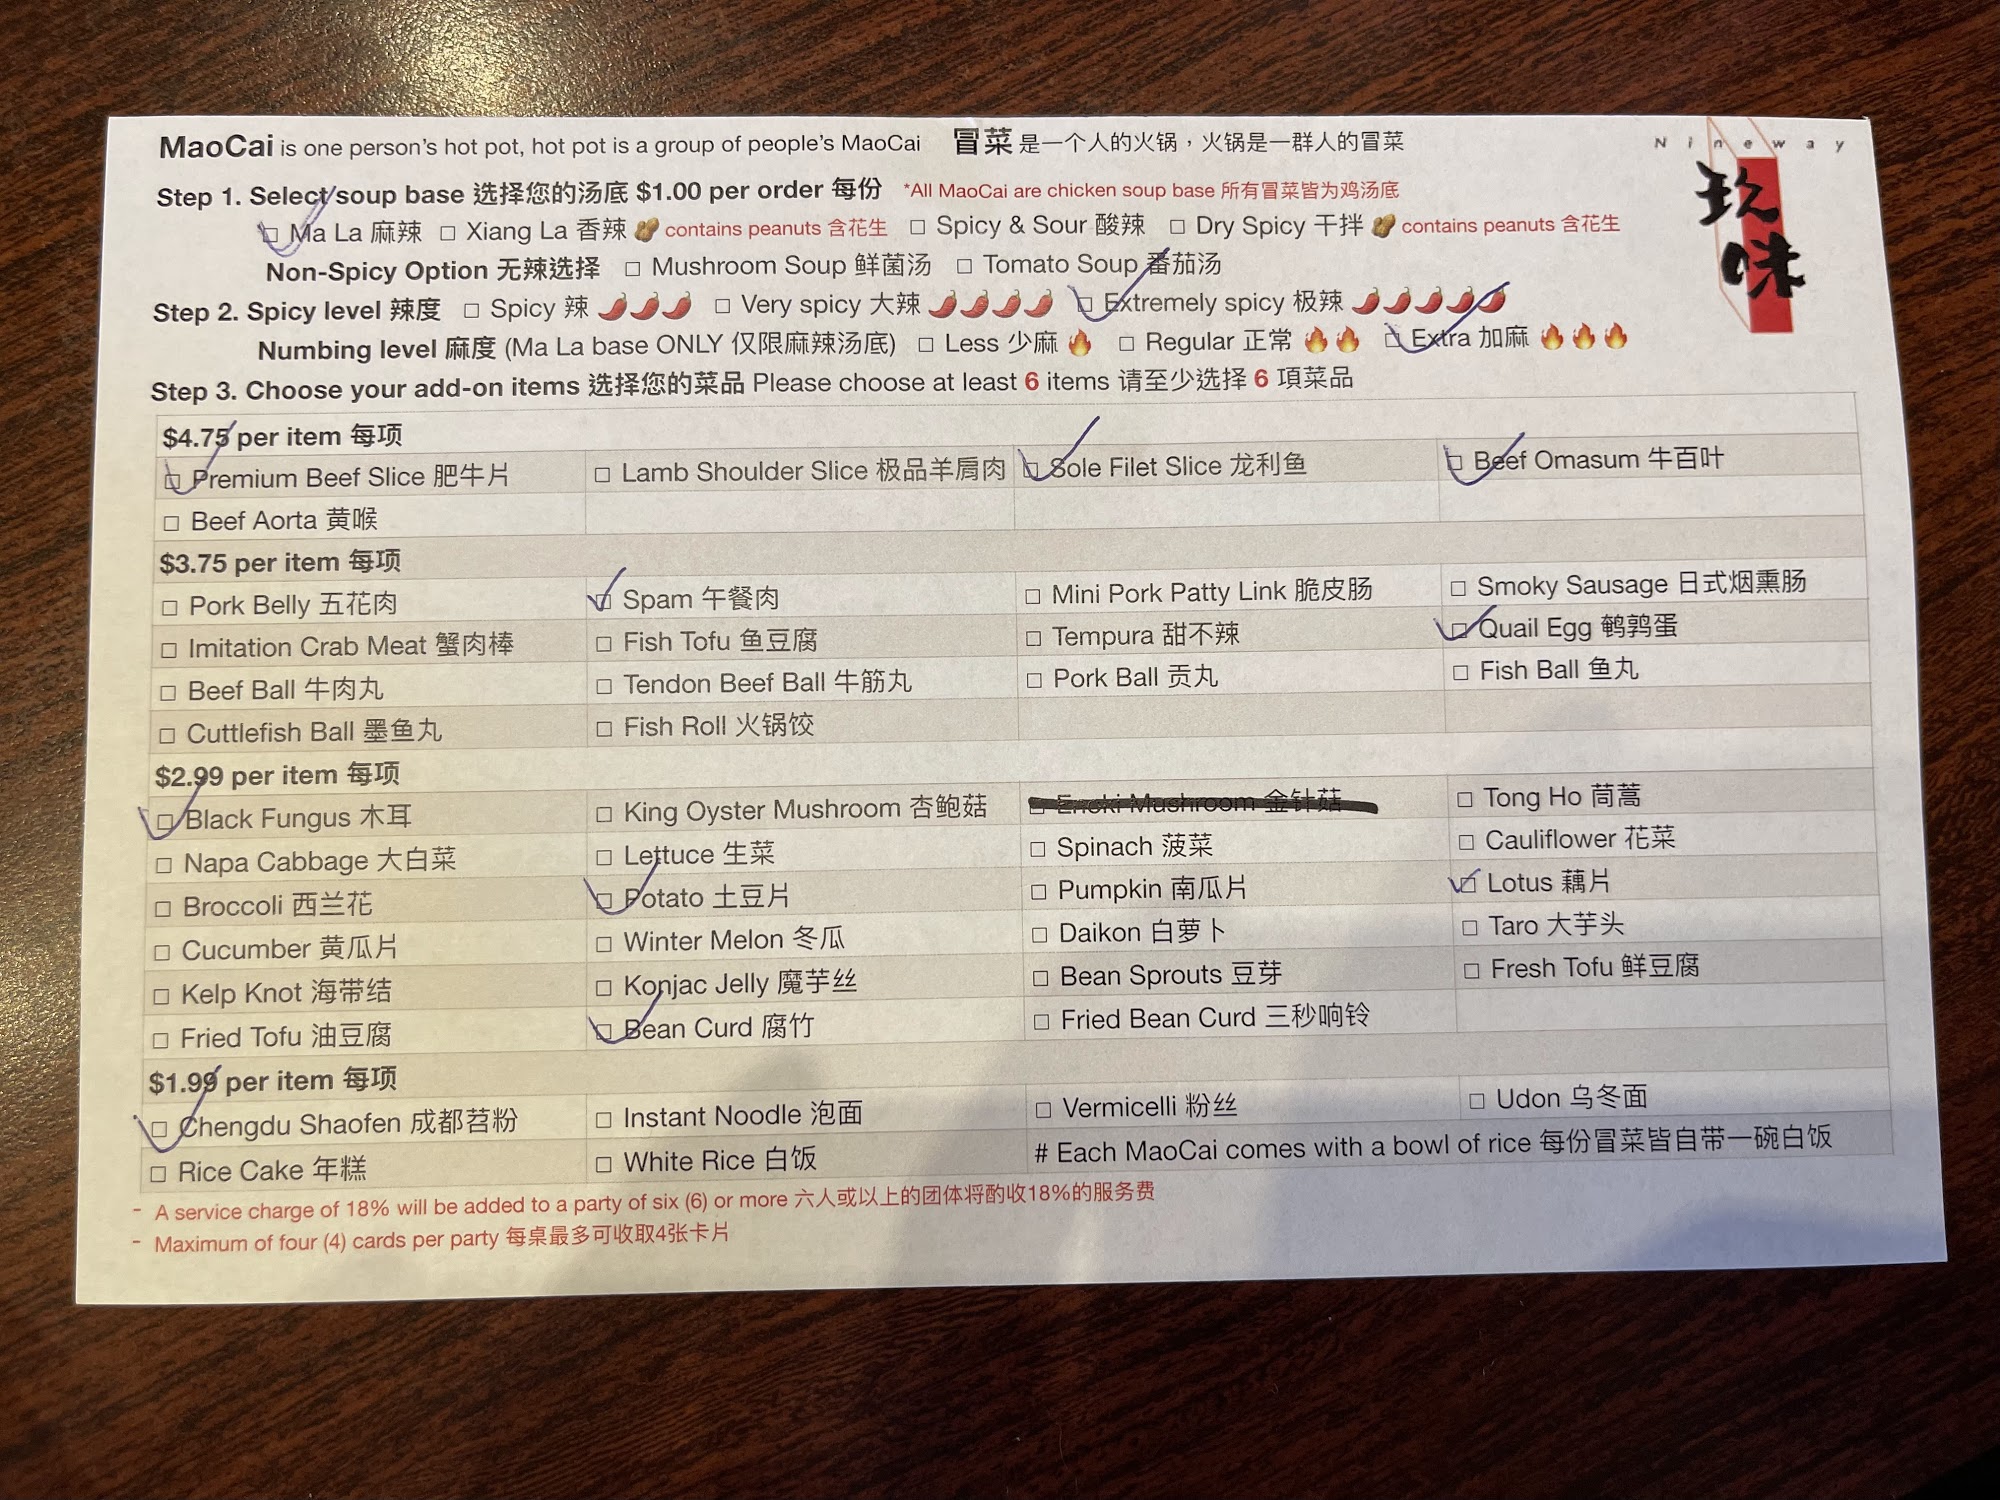 MaoCai is one person's hot pot, hot pot is a group of people's MaoCai 冒菜 是一个人的火锅，火锅是一群人的冒菜
Nineway
玖味
Step 1. Select soup base 选择您的汤底 $1.00 per order 每份 *All MaoCai are chicken soup base 所有冒菜皆为鸡汤底
□ Ma La 麻辣 □ Xiang La 香辣 🥜 contains peanuts 含花生 □ Spicy & Sour 酸辣 □ Dry Spicy 干拌 🥜 contains peanuts 含花生
Non-Spicy Option 无辣选择 □ Mushroom Soup 鲜菌汤 □ Tomato Soup 番茄汤
Step 2. Spicy level 辣度 □ Spicy 辣 🌶🌶🌶 □ Very spicy 大辣 🌶🌶🌶🌶 □ Extremely spicy 极辣 🌶🌶🌶🌶🌶
Numbing level 麻度 (Ma La base ONLY 仅限麻辣汤底) □ Less 少麻 🔥 □ Regular 正常 🔥🔥 □ Extra 加麻 🔥🔥🔥
Step 3. Choose your add-on items 选择您的菜品 Please choose at least 6 items 请至少选择 6 項菜品
$4.75 per item 每项
□ Premium Beef Slice 肥牛片 □ Lamb Shoulder Slice 极品羊肩肉 □ Sole Filet Slice 龙利鱼 □ Beef Omasum 牛百叶
□ Beef Aorta 黄喉
$3.75 per item 每项
□ Pork Belly 五花肉 □ Spam 午餐肉 □ Mini Pork Patty Link 脆皮肠 □ Smoky Sausage 日式烟熏肠
□ Imitation Crab Meat 蟹肉棒 □ Fish Tofu 鱼豆腐 □ Tempura 甜不辣 □ Quail Egg 鹌鹑蛋
□ Beef Ball 牛肉丸 □ Tendon Beef Ball 牛筋丸 □ Pork Ball 贡丸 □ Fish Ball 鱼丸
□ Cuttlefish Ball 墨鱼丸 □ Fish Roll 火锅饺
$2.99 per item 每项
□ Black Fungus 木耳 □ King Oyster Mushroom 杏鲍菇 □ Enoki Mushroom 金针菇 □ Tong Ho 茼蒿
□ Napa Cabbage 大白菜 □ Lettuce 生菜 □ Spinach 菠菜 □ Cauliflower 花菜
□ Broccoli 西兰花 □ Potato 土豆片 □ Pumpkin 南瓜片 □ Lotus 藕片
□ Cucumber 黄瓜片 □ Winter Melon 冬瓜 □ Daikon 白萝卜 □ Taro 大芋头
□ Kelp Knot 海带结 □ Konjac Jelly 魔芋丝 □ Bean Sprouts 豆芽 □ Fresh Tofu 鲜豆腐
□ Fried Tofu 油豆腐 □ Bean Curd 腐竹 □ Fried Bean Curd 三秒响铃
$1.99 per item 每项
□ Chengdu Shaofen 成都苕粉 □ Instant Noodle 泡面 □ Vermicelli 粉丝 □ Udon 乌冬面
□ Rice Cake 年糕 □ White Rice 白饭 # Each MaoCai comes with a bowl of rice 每份冒菜皆自带一碗白饭
- A service charge of 18% will be added to a party of six (6) or more 六人或以上的团体将酌收18%的服务费
- Maximum of four (4) cards per party 每桌最多可收取4张卡片